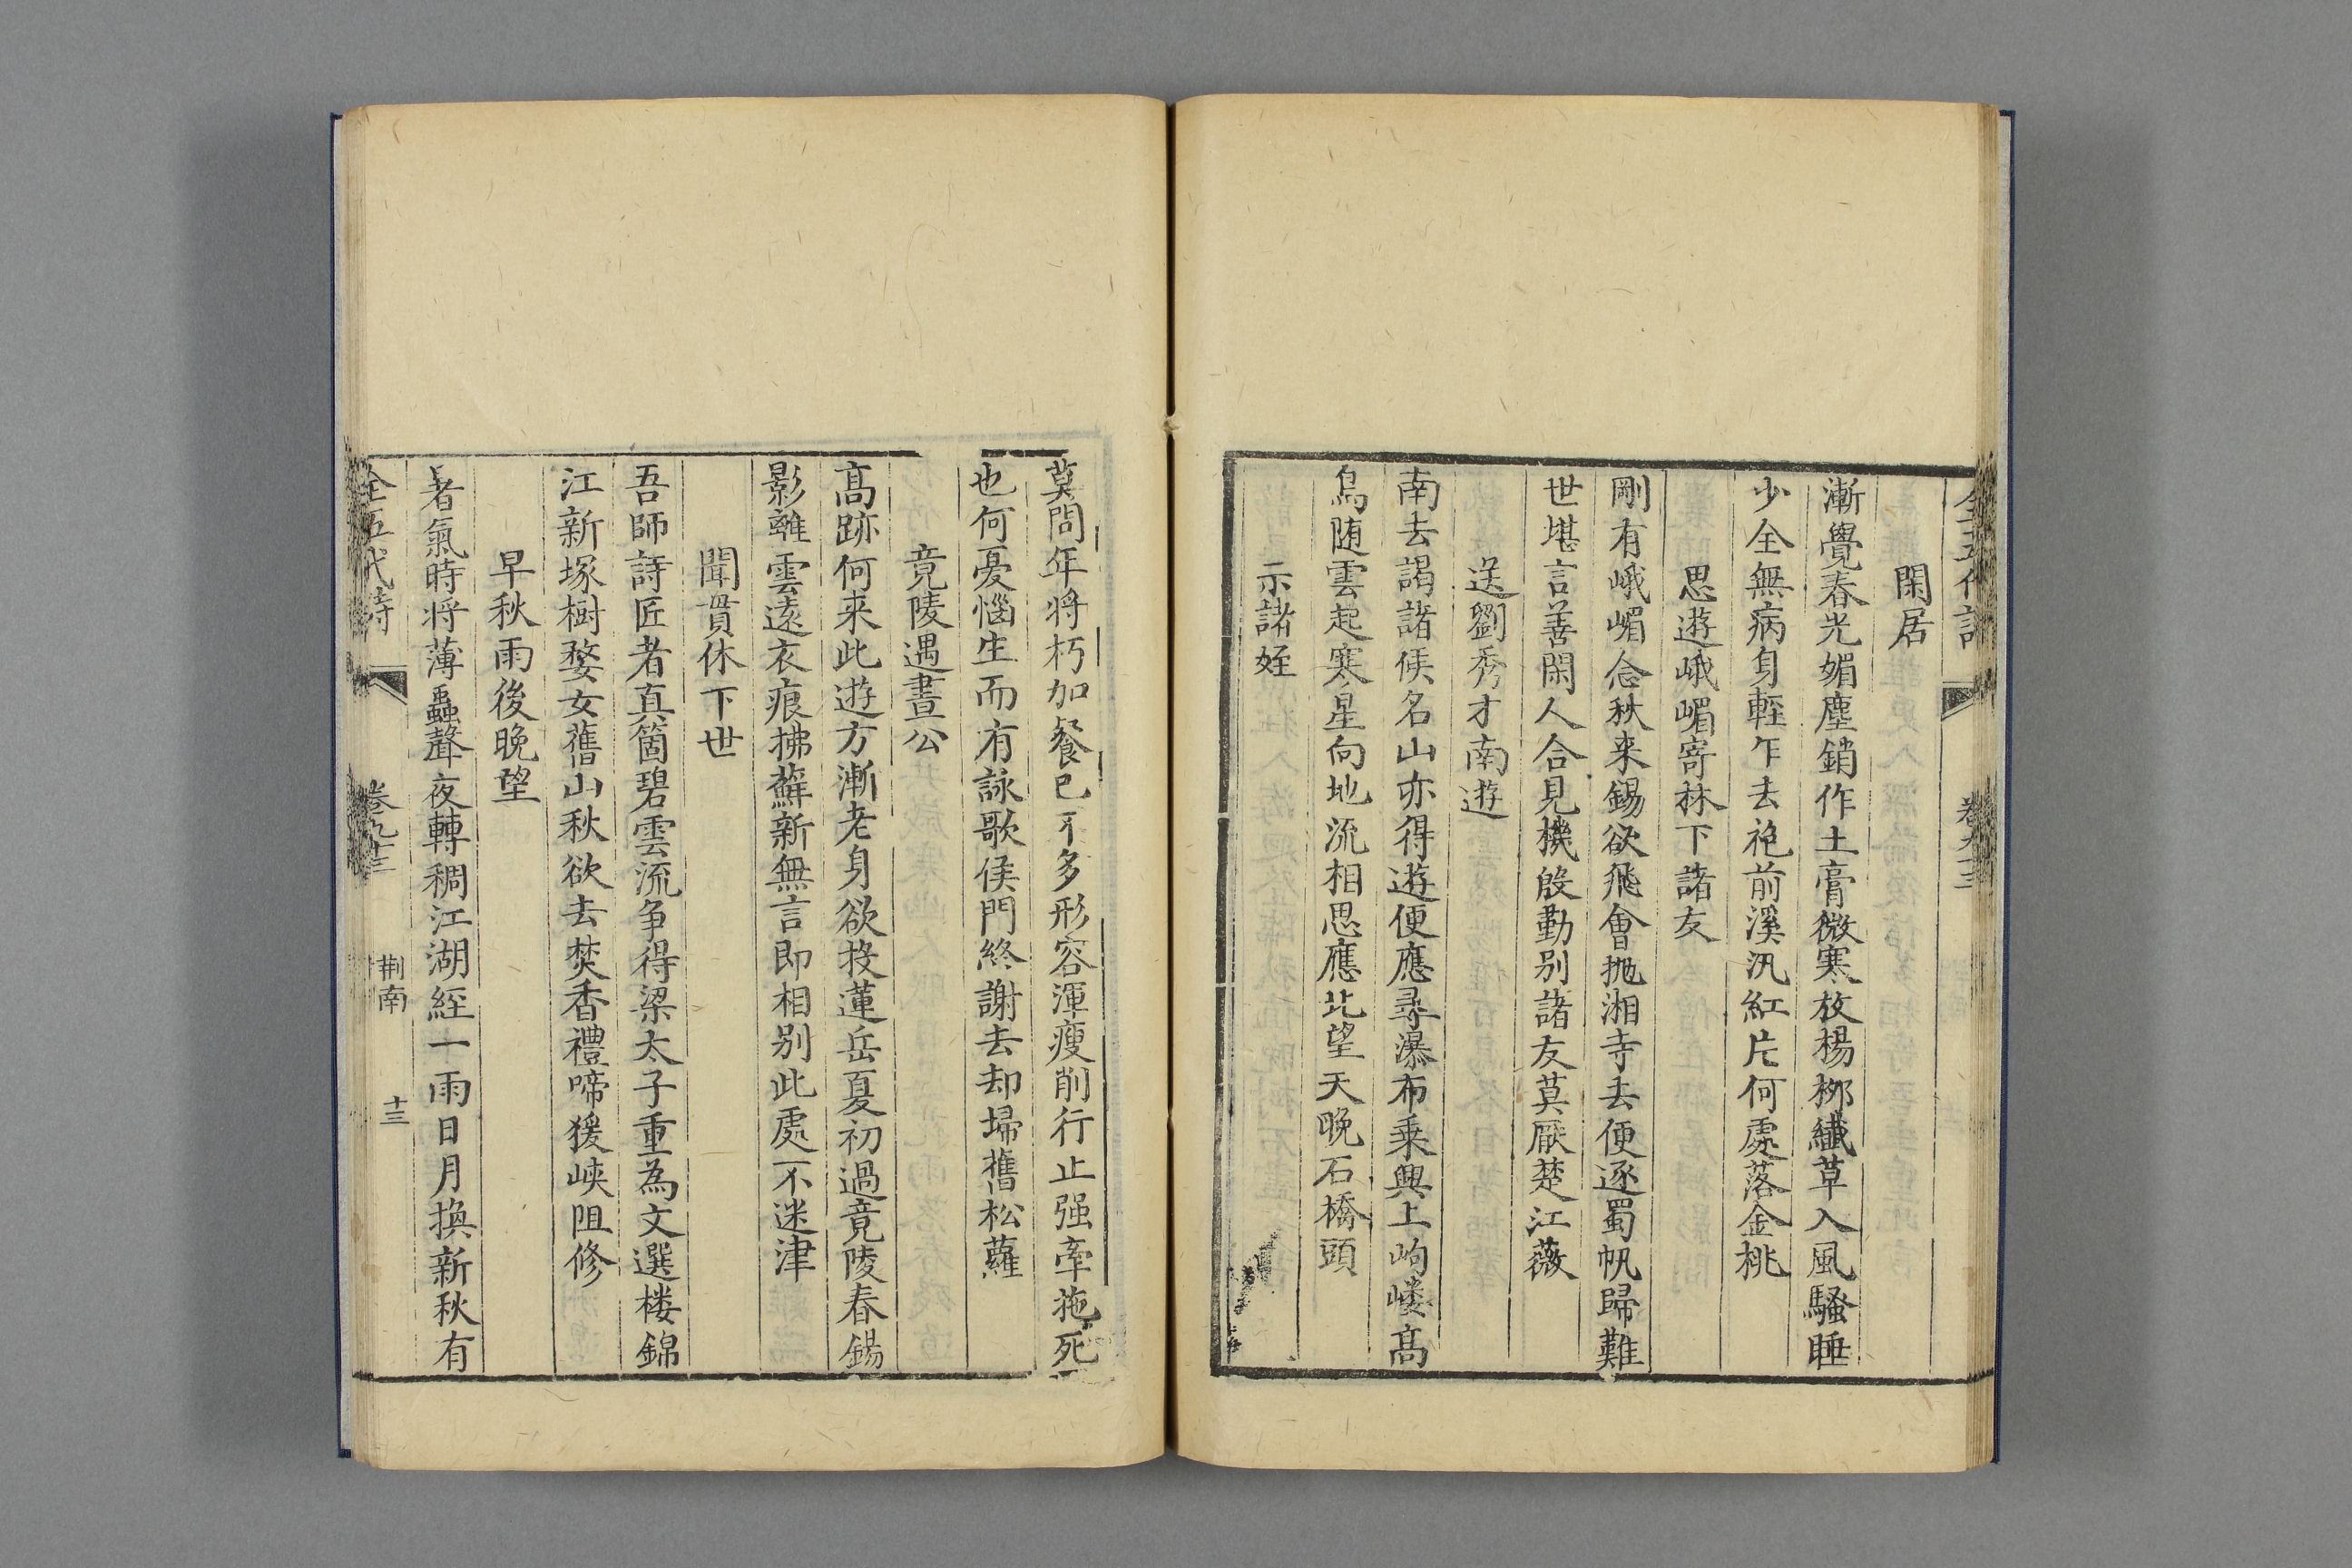 全五代詩
卷九十三
閑居
漸覺春光媚塵銷作土膏微寒放楊栁纎草入風騷睡
少全無病身輕乍去袍前溪汎紅片何處落金桃
思遊峨嵋寄林下諸友
剛有峨嵋念秋来錫欲飛會抛湘寺去便逐蜀帆歸難
世堪言善閑人合見機殷勤别諸友莫厭楚江薇
送劉秀才南遊
南去謁諸侯名山亦得遊便應尋瀑布乗興上岣嶁髙
鳥随雲起寒星向地流相思應北望天晚石橋頭
示諸姪
莫問年将朽加餐已不多形容渾瘦削行止强牽拖死
也何憂惱生而有詠歌侯門終謝去却埽舊松蘿
竟陵遇晝公
髙跡何来此遊方漸老身欲投蓮岳夏初過竟陵春錫
影離雲遠衣痕拂蘚新無言即相别此處不迷津
聞貫休下世
吾師詩匠者真箇碧雲流争得梁太子重為文選楼錦
江新塚樹婺女舊山秋欲去焚香禮啼猨峡阻修
早秋雨後晚望
暑氣時将薄蟲聲夜轉稠江湖經一雨日月換新秋有
全五代詩
卷九十三
荆南
十三